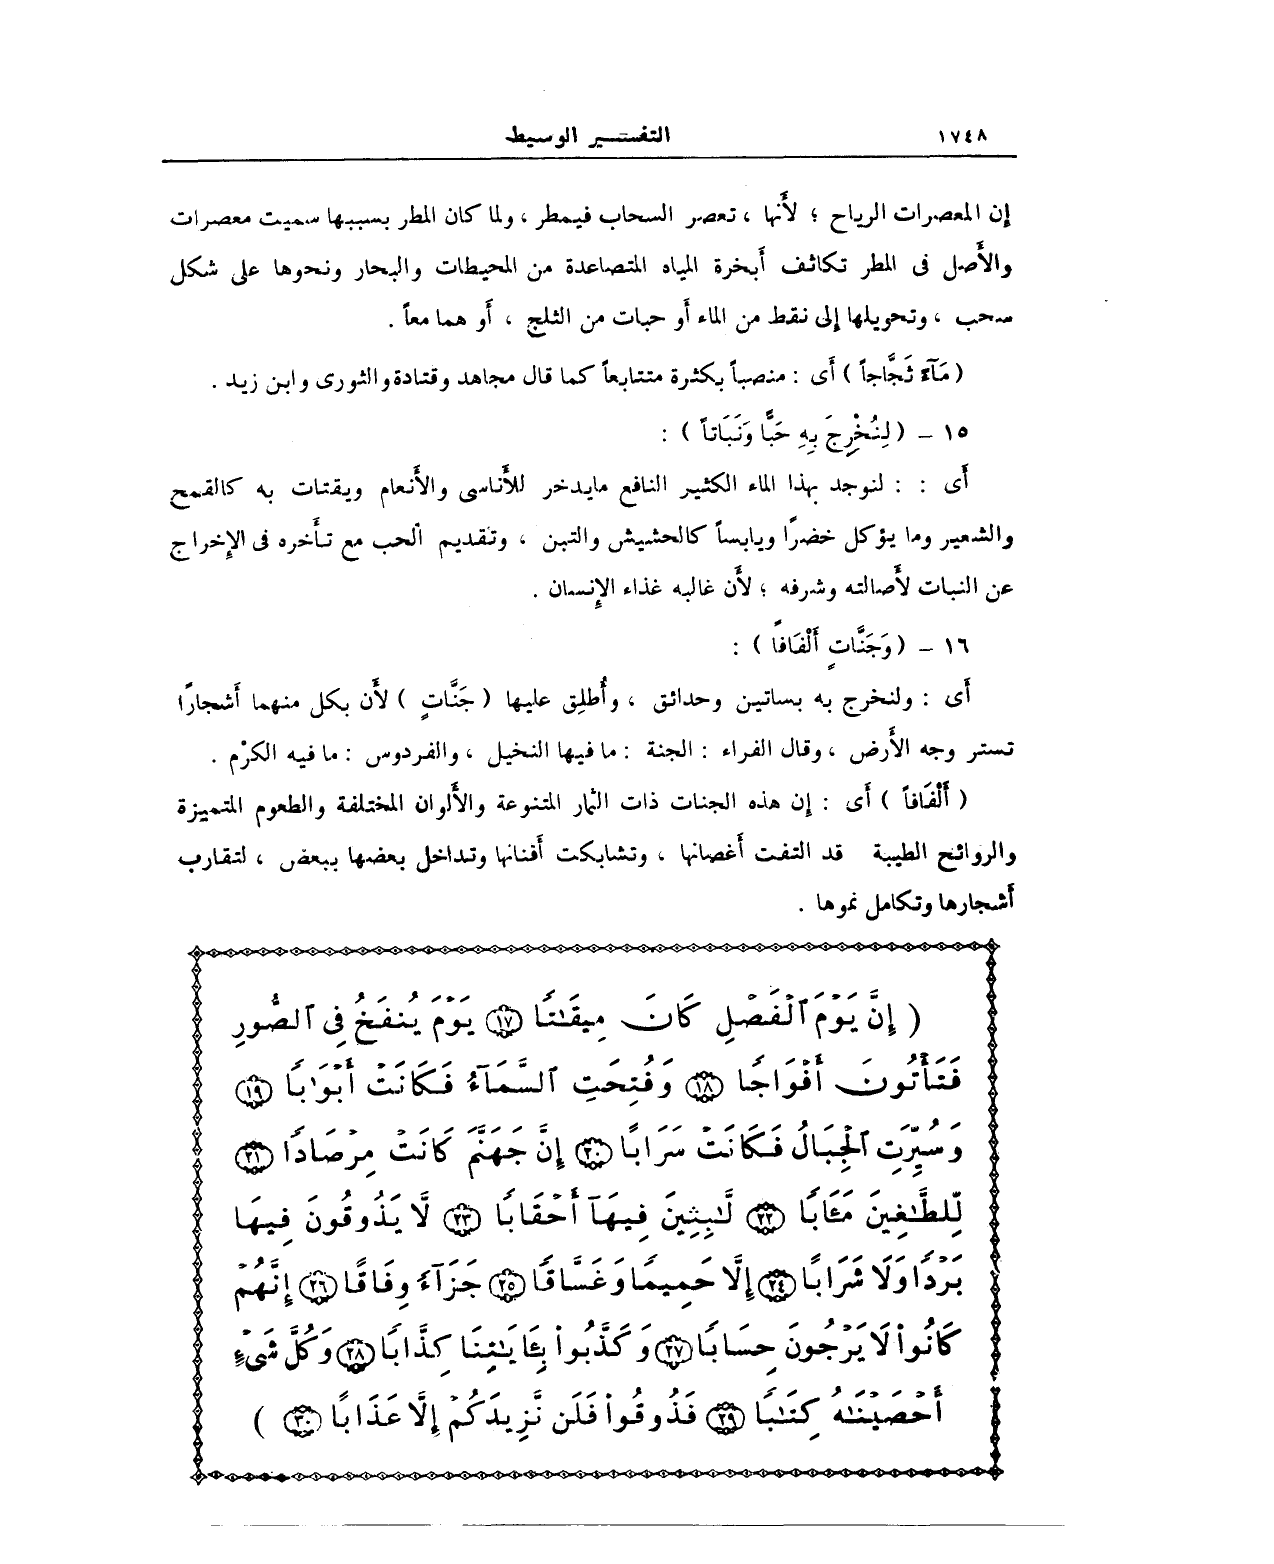 ١٧٤٨
التفسير الوسيط
إن المعصرات الرياح ؛ لأَنها ، تعصر السحاب فيمطر ، ولما كان المطر بسببها سميت معصرات
والأَصل فى المطر تكاثف أَبخرة المياه المتصاعدة من المحيطات والبحار ونحوها على شكل
سحب ، وتحويلها إلى نقط من الماء أَو حبات من الثلج ، أَو هما معاً .
( مَآءً ثَجَّاجاً ) أَى : منصباً بكثرة متتابعاً كما قال مجاهد وقتادة والثورى وابن زيد .
١٥ – ( لِنُخْرِجَ بِهِ حَبًّا وَنَبَاتاً ) :
أَى : : لنوجد بهذا الماء الكثير النافع مايدخر للأَناسى والأَنعام ويقتات به كالقمح
والشعير وما يؤكل خضرًا ويابساً كالحشيش والتبن ، وتقديم الحب مع تأَخره فى الإِخراج
عن النبات لأَصالته وشرفه ؛ لأَن غالبه غذاء الإِنسان .
١٦ – ( وَجَنَّاتٍ أَلْفَافًا ) :
أَى : ولنخرج به بساتين وحدائق ، وأُطلِق عليها ( جَنَّاتٍ ) لأَن بكل منهما أَشجارًا
تستر وجه الأَرض ، وقال الفراء : الجنة : ما فيها النخيل ، والفردوس : ما فيه الكرْم .
( أَلْفَافاً ) أَى : إن هذه الجنات ذات الثمار المتنوعة والأَلوان المختلفة والطعوم المتميزة
والروائح الطيبة قد التفت أَغصانها ، وتشابكت أَفنانها وتداخل بعضها ببعض ، لتقارب
أَشجارها وتكامل نموها .
( إِنَّ يَوْمَ ٱلْفَصْلِ كَانَ مِيقَٰتًا ١٧ يَوْمَ يُنفَخُ فِى ٱلصُّورِ
فَتَأْتُونَ أَفْوَاجًا ١٨ وَفُتِحَتِ ٱلسَّمَآءُ فَكَانَتْ أَبْوَٰبًا ١٩
وَسُيِّرَتِ ٱلْجِبَالُ فَكَانَتْ سَرَابًا ٢٠ إِنَّ جَهَنَّمَ كَانَتْ مِرْصَادًا ٢١
لِّلطَّٰغِينَ مَـَٔابًا ٢٢ لَّٰبِثِينَ فِيهَآ أَحْقَابًا ٢٣ لَّا يَذُوقُونَ فِيهَا
بَرْدًا وَلَا شَرَابًا ٢٤ إِلَّا حَمِيمًا وَغَسَّاقًا ٢٥ جَزَآءً وِفَاقًا ٢٦ إِنَّهُمْ
كَانُوا۟ لَا يَرْجُونَ حِسَابًا ٢٧ وَكَذَّبُوا۟ بِـَٔايَٰتِنَا كِذَّابًا ٢٨ وَكُلَّ شَىْءٍ
أَحْصَيْنَٰهُ كِتَٰبًا ٢٩ فَذُوقُوا۟ فَلَن نَّزِيدَكُمْ إِلَّا عَذَابًا ٣٠ )